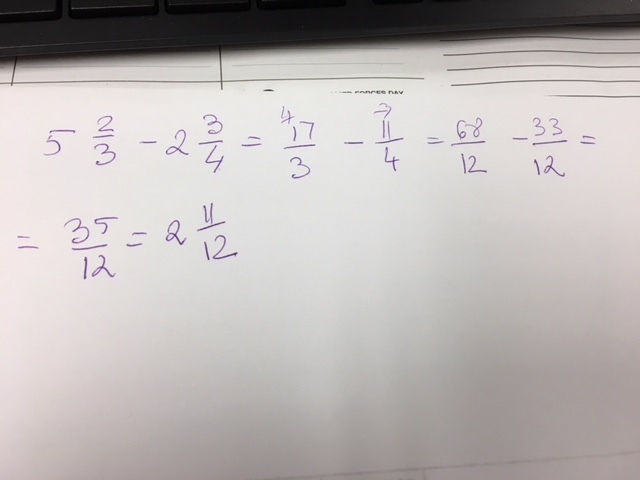 FORCES DAY
5 2/3 - 2 3/4 = ⁴17/3 - ³11/4 = 68/12 - 33/12 =
= 35/12 = 2 11/12